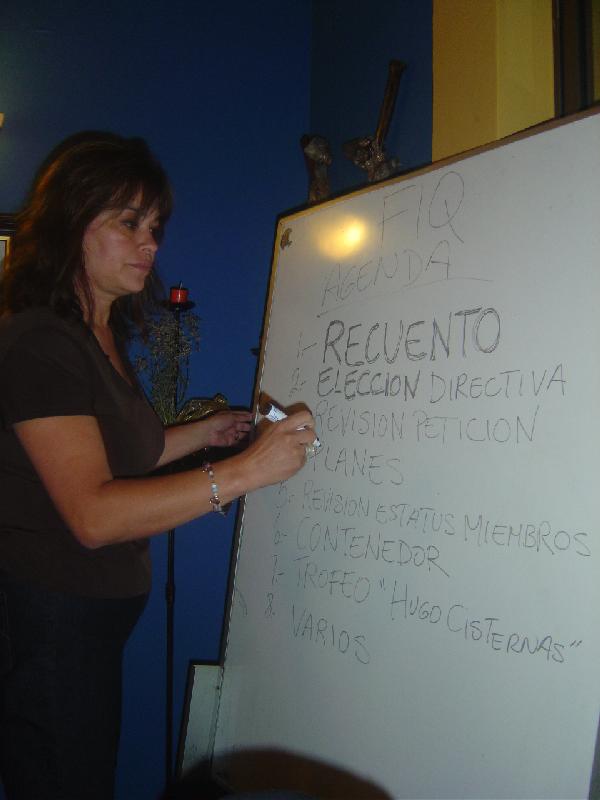 FIQ
AGENDA
1- RECUENTO
2- ELECCION DIRECTIVA
REVISION PETICION
PLANES
5- REVISION ESTATUS MIEMBROS
6- CONTENEDOR
7- TROFEO "HUGO CISTERNAS"
8. VARIOS